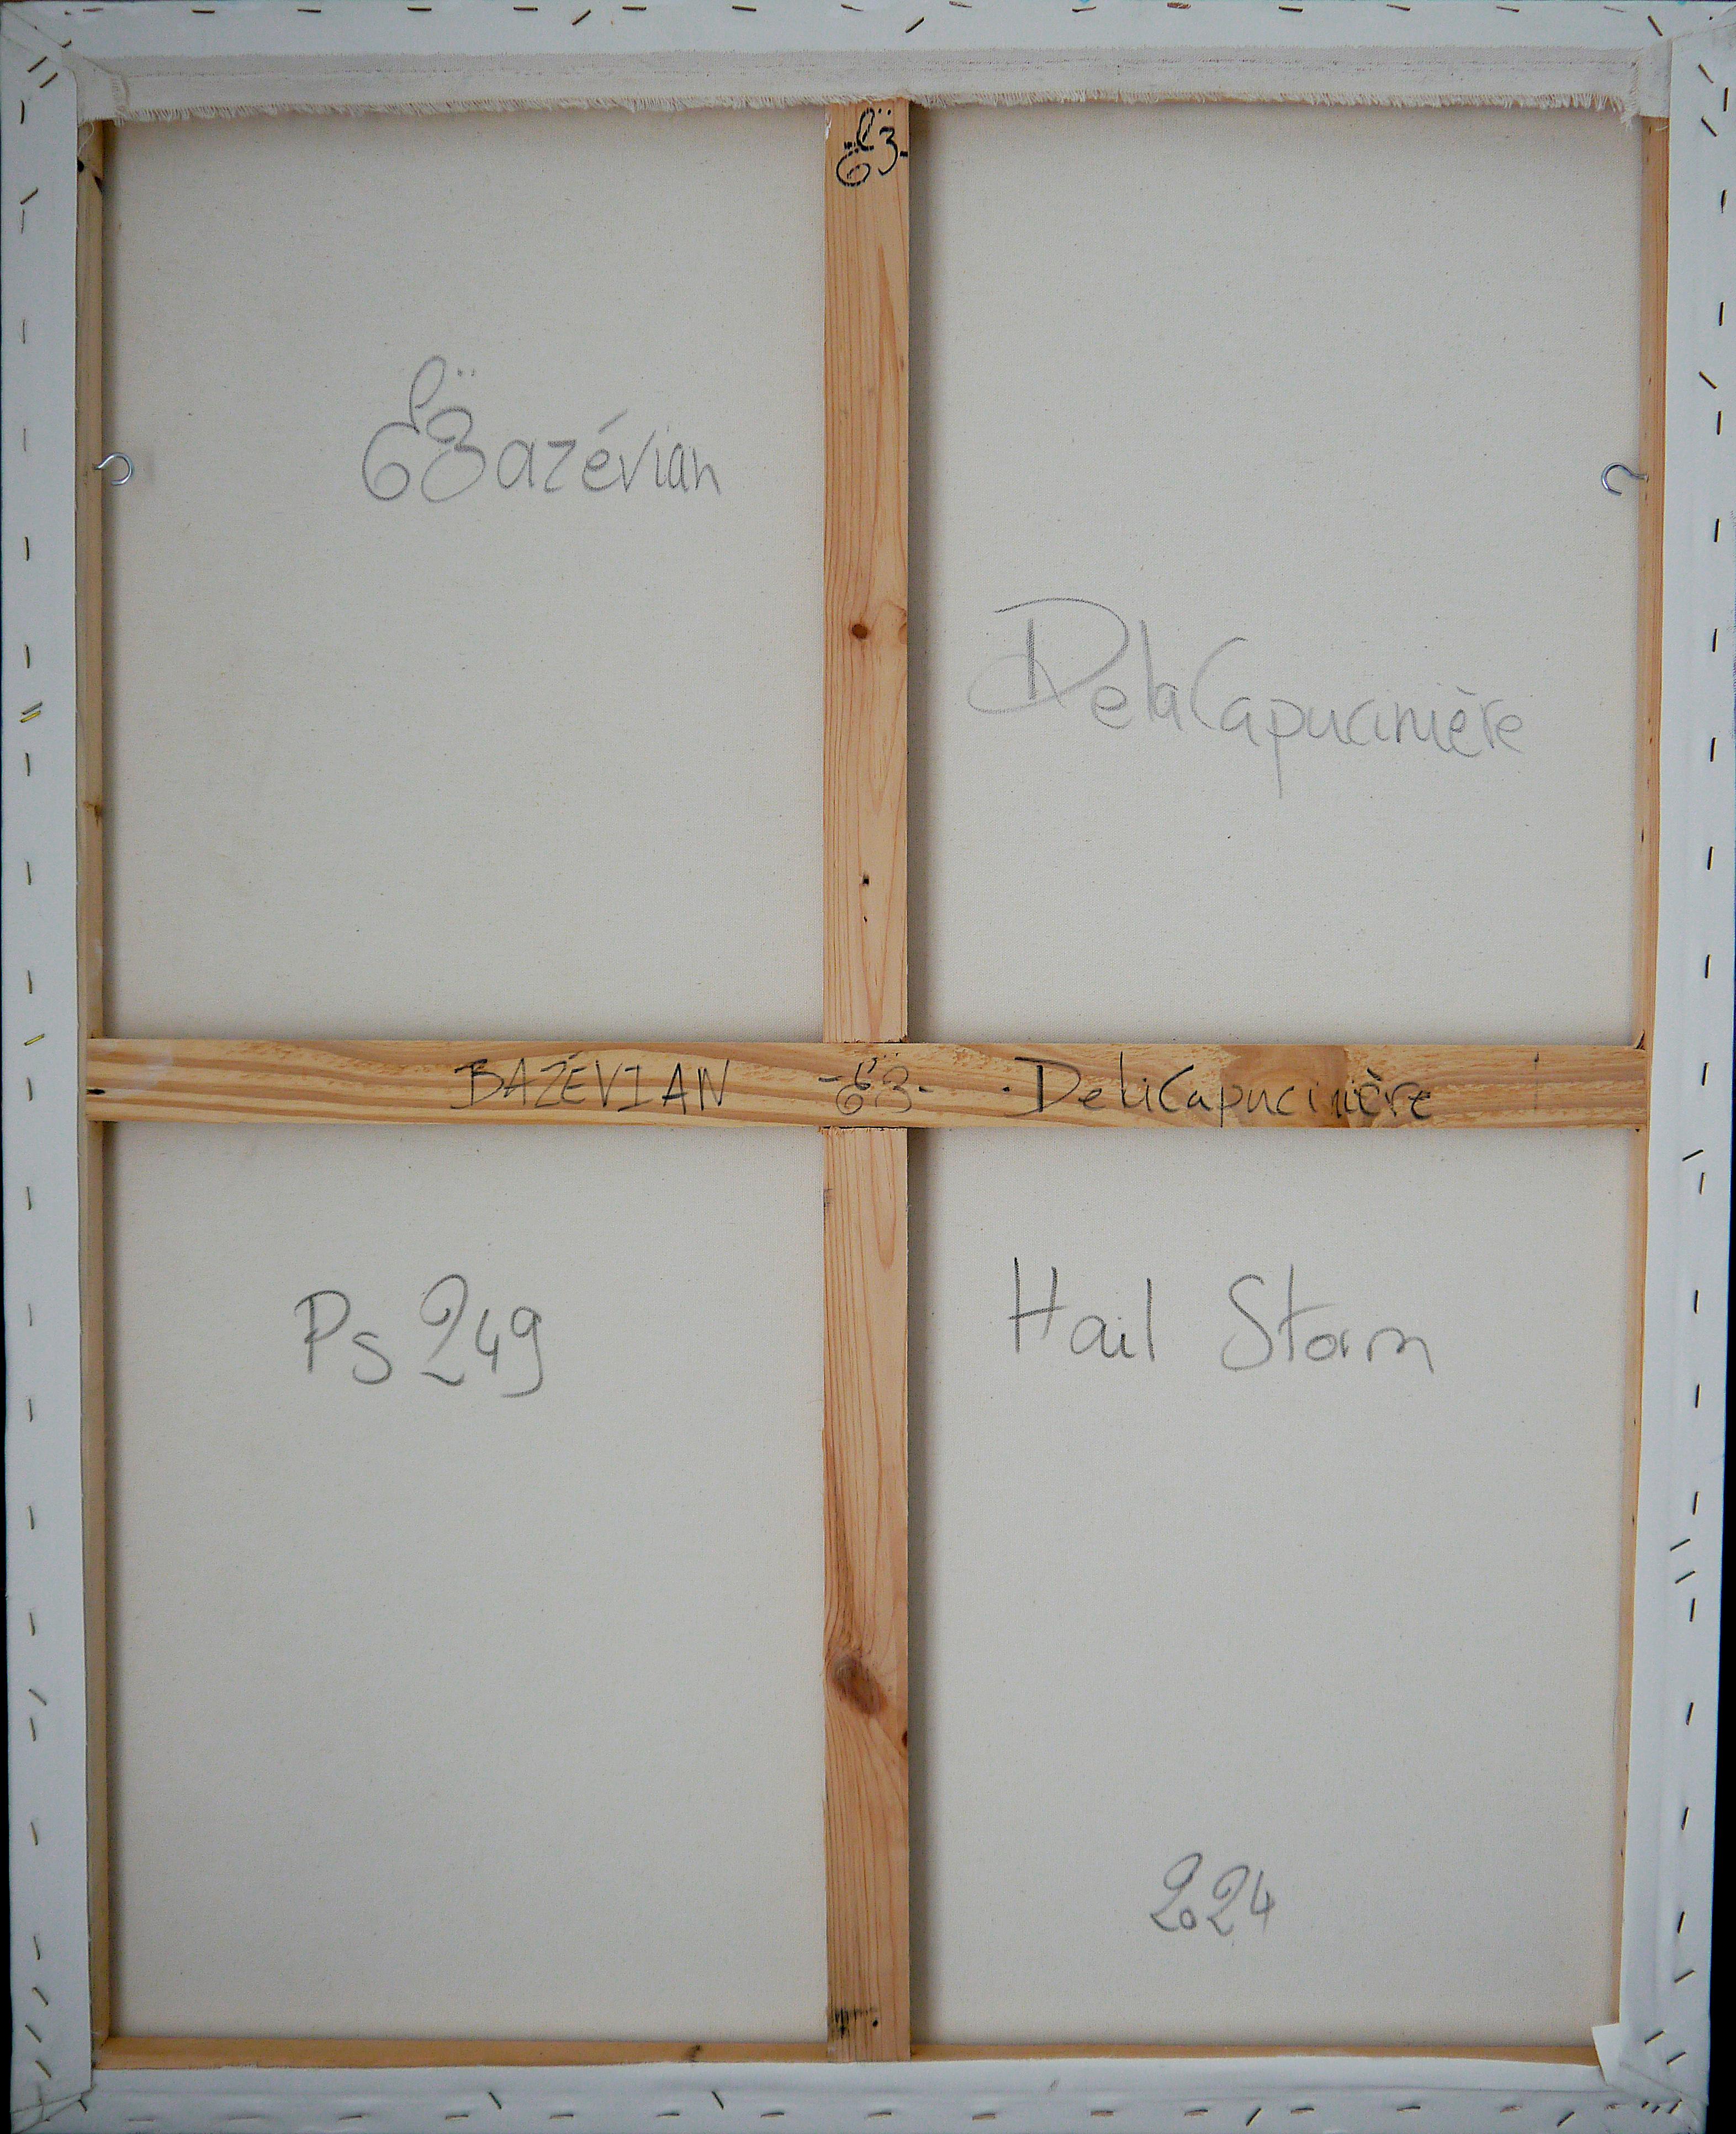 Bazévian
DelaCapucinière
BAZÉVIAN DelaCapucinière
Ps 249
Hail Storm
2024